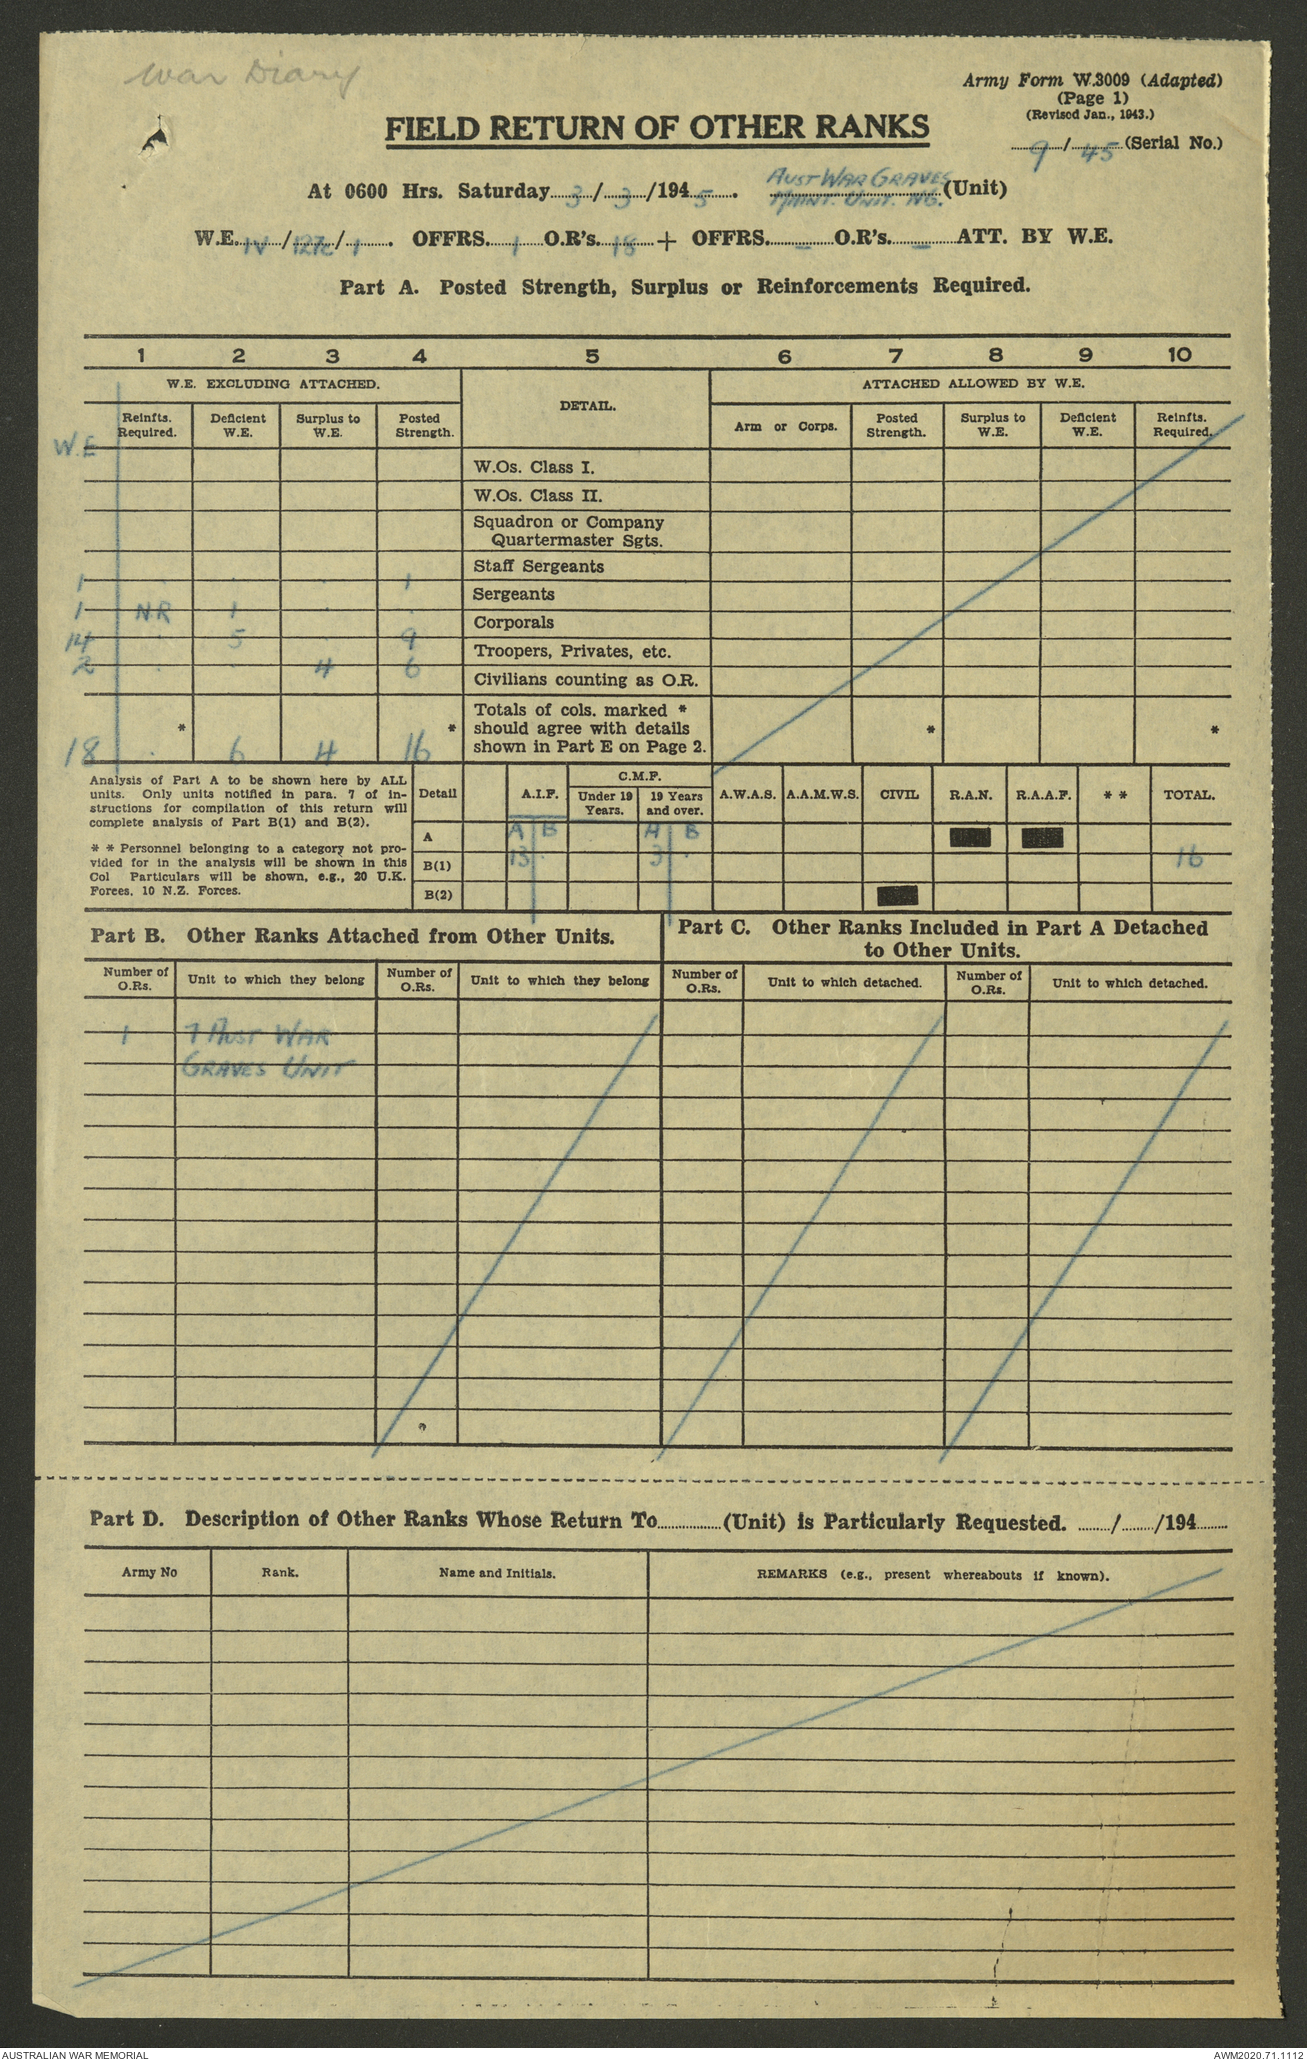 War Diary
Army Form W.3009 (Adapted)
(Page 1)
(Revised Jan., 1943.)
9/45 (Serial No.)
FIELD RETURN OF OTHER RANKS
At 0600 Hrs. Saturday 3/3/1945. AUST WAR GRAVES MAINT. UNIT. NG. (Unit)
W.E. IV/127c/1. OFFRS. 1 O.R's. 18 + OFFRS. – O.R's. – ATT. BY W.E.
Part A. Posted Strength, Surplus or Reinforcements Required.
1 2 3 4 5 6 7 8 9 10
W.E. EXCLUDING ATTACHED. DETAIL. ATTACHED ALLOWED BY W.E.
Reinfts. Required. Deficient W.E. Surplus to W.E. Posted Strength. Arm or Corps. Posted Strength. Surplus to W.E. Deficient W.E. Reinfts. Required.
W.E
W.Os. Class I.
W.Os. Class II.
Squadron or Company
Quartermaster Sgts.
Staff Sergeants
1 . . . 1 Sergeants
1 NR 1 . . Corporals
14 . 5 . 9 Troopers, Privates, etc.
2 . . 4 6 Civilians counting as O.R.
Totals of cols. marked *
should agree with details
shown in Part E on Page 2.
* * * *
18 . 6 4 16
Analysis of Part A to be shown here by ALL
units. Only units notified in para. 7 of in-
structions for compilation of this return will
complete analysis of Part B(1) and B(2).
* * Personnel belonging to a category not pro-
vided for in the analysis will be shown in this
Col Particulars will be shown, e.g., 20 U.K.
Forces, 10 N.Z. Forces.
Detail A.I.F. C.M.F. Under 19 Years. 19 Years and over. A.W.A.S. A.A.M.W.S. CIVIL R.A.N. R.A.A.F. * * TOTAL.
A A B A B
B(1) 13 . 3 . 16
B(2)
Part B. Other Ranks Attached from Other Units.
Part C. Other Ranks Included in Part A Detached
to Other Units.
Number of O.Rs. Unit to which they belong Number of O.Rs. Unit to which they belong Number of O.Rs. Unit to which detached. Number of O.Rs. Unit to which detached.
1 7 AUST WAR
GRAVES UNIT
Part D. Description of Other Ranks Whose Return To............(Unit) is Particularly Requested. ......../......../194........
Army No Rank. Name and Initials. REMARKS (e.g., present whereabouts if known).
AUSTRALIAN WAR MEMORIAL AWM2020.71.1112